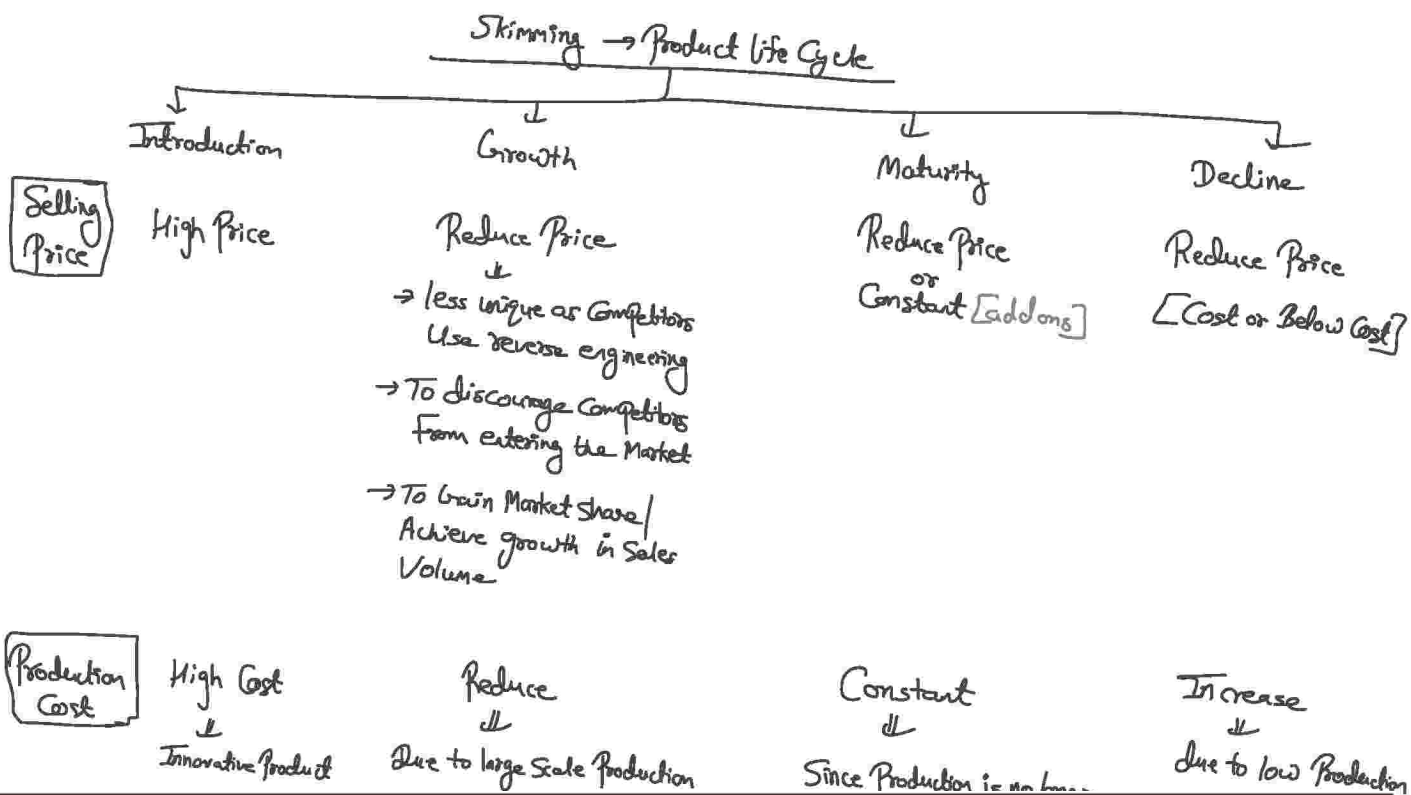 Skimming → Product life Cycle
Introduction
Growth
Maturity
Decline
Selling
Price
High Price
Reduce Price
→ less unique as Competitors
Use reverse engineering
→ To discourage Competitors
From entering the Market
→ To Gain Market share/
Achieve growth in Sales
Volume
Reduce Price
or
Constant [add ons]
Reduce Price
[Cost or Below Cost]
Production
Cost
High Cost
Innovative Product
Reduce
Due to large Scale Production
Constant
Since Production is no
Increase
due to low Production